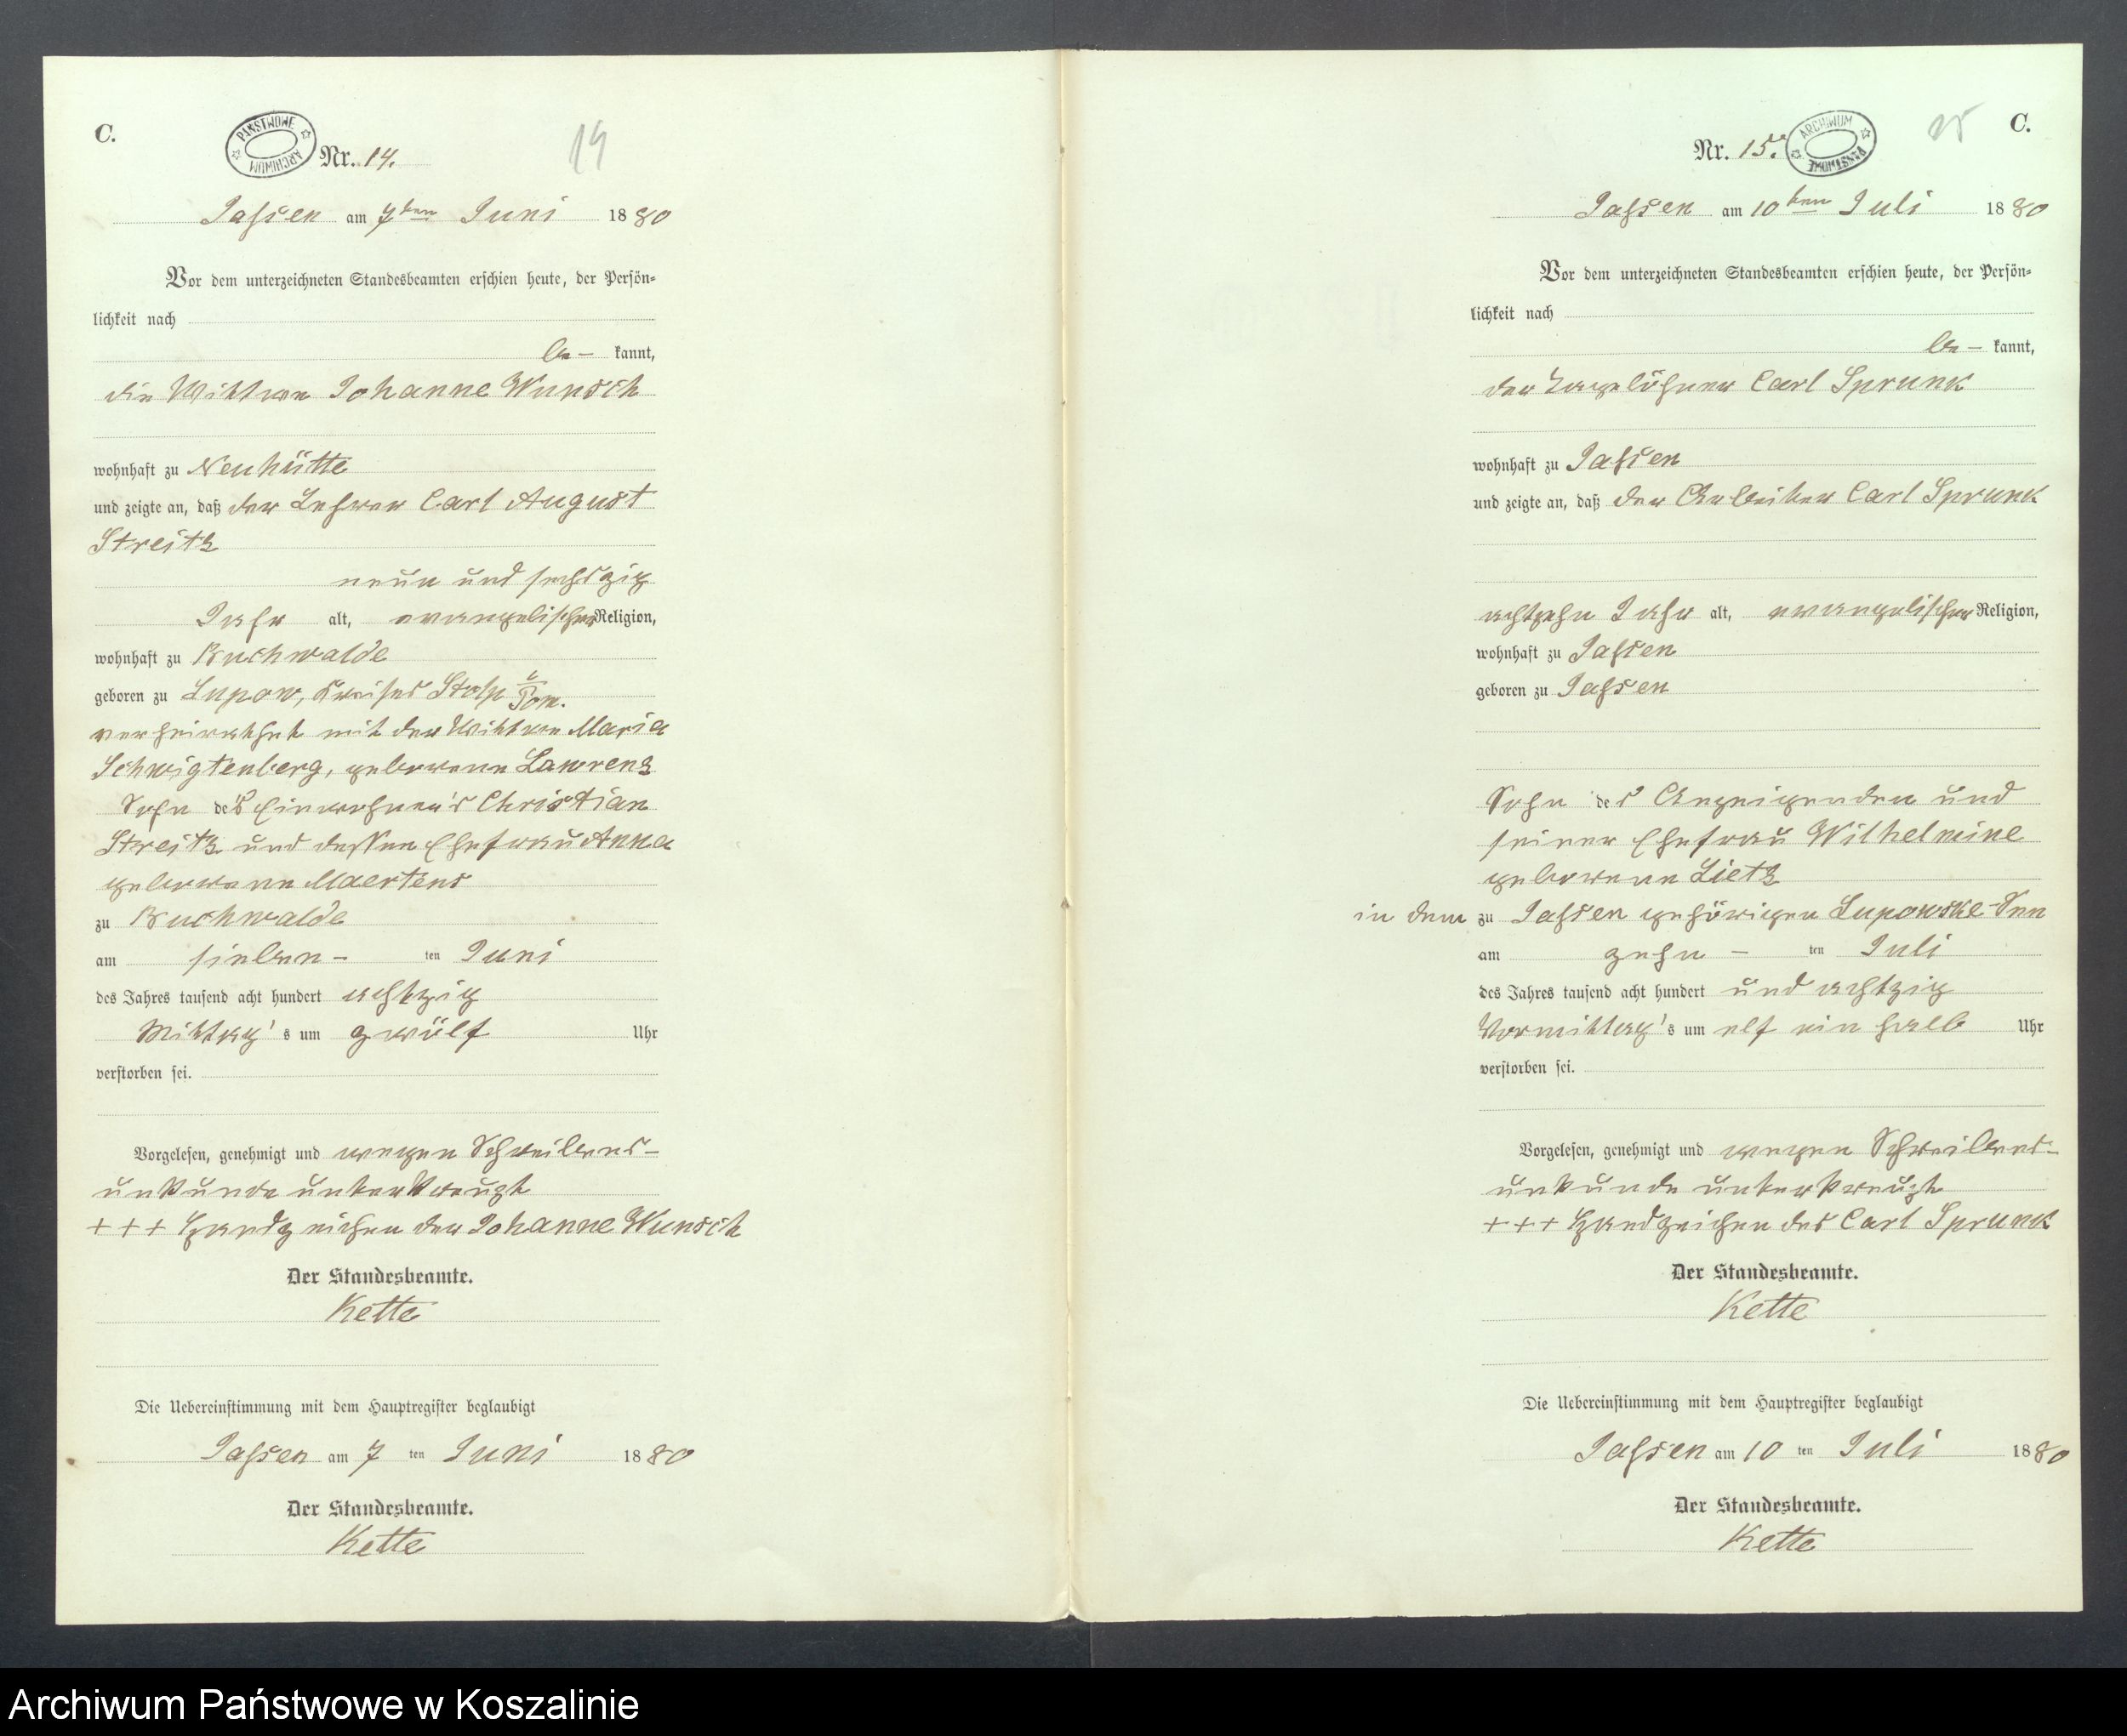 C.
PAŃSTWOWE ARCHIWUM
Nr. 14.
14
Jassen am 7ten Juni 1880
Vor dem unterzeichneten Standesbeamten erschien heute, der Persön-
lichkeit nach
be- kannt,
die Wittwe Johanne Wunsch
wohnhaft zu Neuhütte
und zeigte an, daß der Lehrer Carl August
Streitz
neun und sechszig
Jahr alt, evangelischer Religion,
wohnhaft zu Buchwalde
geboren zu Lupow, Kreises Stolp i/Pom.
verheirathet mit der Wittwe Maria
Schwigtenberg, geborene Lawrenz
Sohn des Einwohner's Christian
Streitz und dessen Ehefrau Anna
geborene Maertens
zu Buchwalde
am sieben- ten Juni
des Jahres tausend acht hundert achtzig
Mittag's um zwölf Uhr
verstorben sei.
Vorgelesen, genehmigt und wegen Schreibens-
unkunde unterkreuzt
+++ Handzeichen der Johanne Wunsch
Der Standesbeamte.
Kette
Die Uebereinstimmung mit dem Hauptregister beglaubigt
Jassen am 7 ten Juni 1880
Der Standesbeamte.
Kette
15 C.
Nr. 15.
ARCHIWUM PAŃSTWOWE
Jassen am 10ten Juli 1880
Vor dem unterzeichneten Standesbeamten erschien heute, der Persön-
lichkeit nach
be- kannt,
der Tagelöhner Carl Sprunk
wohnhaft zu Jassen
und zeigte an, daß der Arbeiter Carl Sprunk
achtzehn Jahr alt, evangelischer Religion,
wohnhaft zu Jassen
geboren zu Jassen
Sohn des Anzeigenden und
seiner Ehefrau Wilhelmine
geborene Lietz
in dem zu Jassen gehörigen Lupowske-See
am zehn- ten Juli
des Jahres tausend acht hundert und achtzig
Vormittag's um elf ein halb Uhr
verstorben sei.
Vorgelesen, genehmigt und wegen Schreibens-
unkunde unterkreuzt
+++ Handzeichen des Carl Sprunk
Der Standesbeamte.
Kette
Die Uebereinstimmung mit dem Hauptregister beglaubigt
Jassen am 10 ten Juli 1880
Der Standesbeamte.
Kette
Archiwum Państwowe w Koszalinie